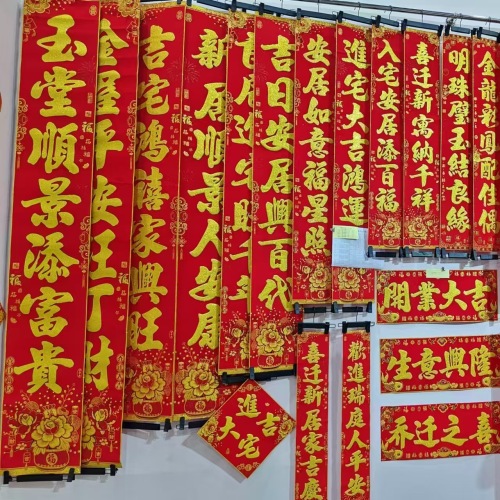 玉堂順景添富貴
金屋平安旺丁財
吉宅鴻禧家興旺
新居順景人安康
吉日安居興百代
安居如意福星照
進宅大吉鴻運
入宅安居添百福
喜迁新寓納千祥
明珠璧玉結良絲
金龍彩鳳配佳偶
開業大吉
生意興隆
乔迁之喜
進宅大吉
喜迁新居家吉慶
歡進瑞庭人平安